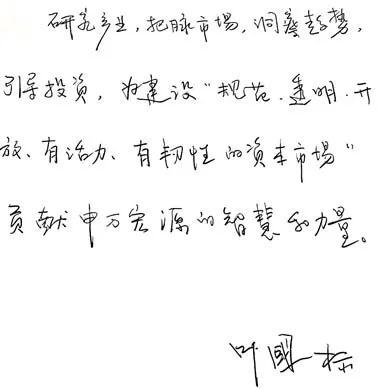 研究产业，把脉市场，洞察趋势，
引导投资，为建设“规范、透明、开
放、有活力、有韧性的资本市场”
贡献申万宏源的智慧和力量。
叶国标